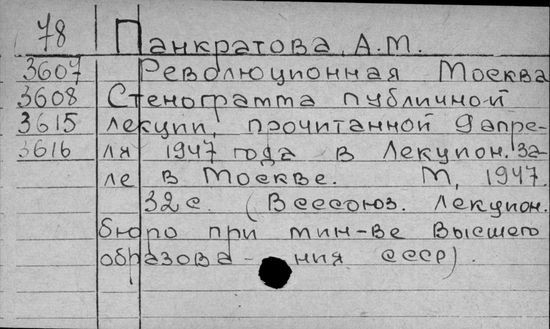 78 Панкратова, А.М.
3607 Революционная Москва
3608 Стенограмма публичной
3615 лекции, прочитанной 9 апре-
3616 ля 1947 года в Лекцион. за-
ле в Москве. М, 1947.
32 с. (Всесоюз. лекцион.
бюро при мин-ве высшего
образова - ния СССР).